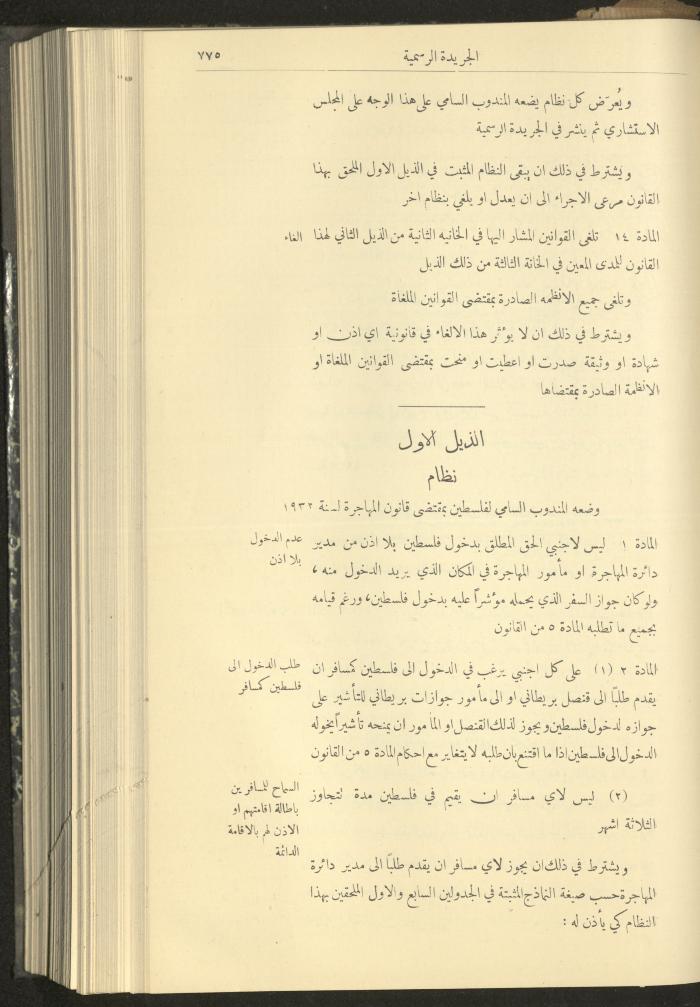 الجريدة الرسمية
٧٧٥
ويُعرَض كل نظام يضعه المندوب السامي على هذا الوجه على المجلس
الاستشاري ثم ينشر في الجريدة الرسمية
ويشترط في ذلك ان يبقى النظام المثبت في الذيل الاول الملحق بهذا
القانون مرعى الاجراء الى ان يعدل او يلغي بنظام اخر
المادة ١٤ تلغى القوانين المشار اليها في الخانيه الثانية من الذيل الثاني لهذا
الغاء
القانون للمدى المعين في الخانة الثالثة من ذلك الذيل
وتلغى جميع الانظمه الصادرة بمقتضى القوانين الملغاة
ويشترط في ذلك ان لا يوثر هذا الالغاء في قانونية اي اذن او
شهادة او وثيقة صدرت او اعطيت او منحت بمقتضى القوانين الملغاة او
الانظمة الصادرة بمقتضاها
الذيل الاول
نظام
وضعه المندوب السامي لفلسطين بمقتضى قانون المهاجرة لسنة ١٩٣٢
المادة ١ ليس لاجنبي الحق المطلق بدخول فلسطين بلا اذن من مدير
عدم الدخول
بلا اذن
دائرة المهاجرة او مأمور المهاجرة في المكان الذي يريد الدخول منه ،
ولو كان جواز السفر الذي يحمله مؤشراً عليه بدخول فلسطين، ورغم قيامه
بجميع ما تطلبه المادة ٥ من القانون
المادة ٢ (١) على كل اجنبي يرغب في الدخول الى فلسطين كمسافر ان
طلب الدخول الى
فلسطين كمسافر
يقدم طلبًا الى قنصل بريطاني او الى مأمور جوازات بريطاني للتأشير على
جوازه لدخول فلسطين ويجوز لذلك القنصل او المأمور ان يمنحه تأشيراً يخوله
الدخول الى فلسطين اذا ما اقتنع بان طلبه لا يتغاير مع احكام المادة ٥ من القانون
(٢) ليس لاي مسافر ان يقيم في فلسطين مدة تتجاوز
السماح للمسافرين
باطالة اقامتهم او
الاذن لهم بالاقامة
الدائمة
الثلاثة اشهر
ويشترط في ذلك ان يجوز لاي مسافر ان يقدم طلبًا الى مدير دائرة
المهاجرة حسب صيغة النماذج المثبتة في الجدولين السابع والاول الملحقين بهذا
النظام كي يأذن له :